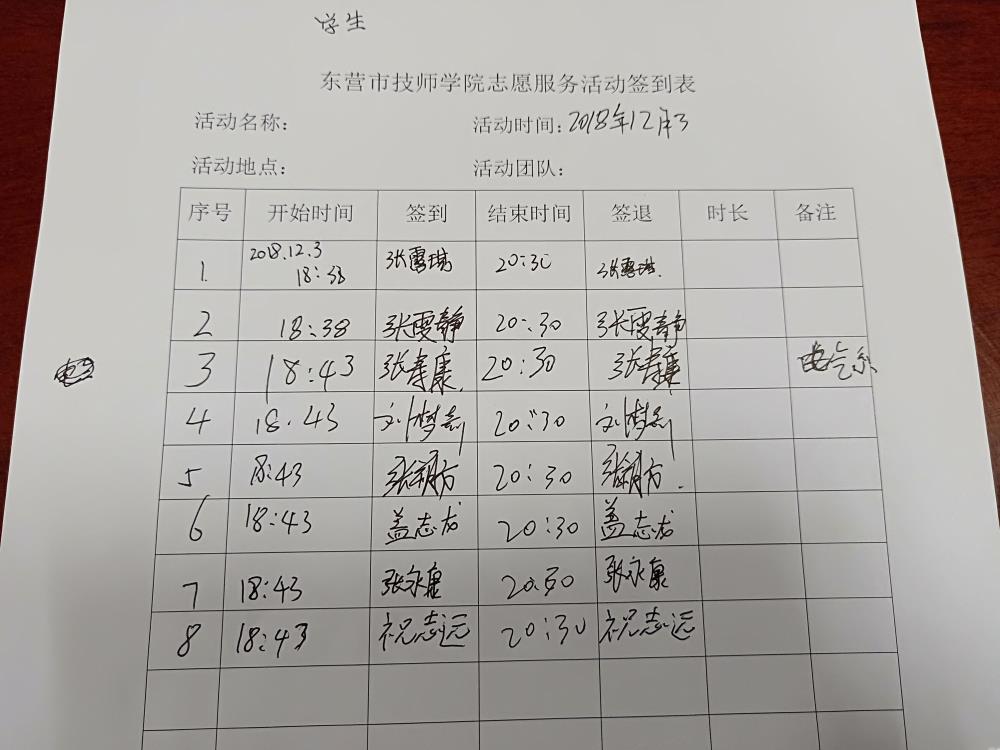 学生
东营市技师学院志愿服务活动签到表
活动名称: 活动时间: 2018年12月3
活动地点: 活动团队:
序号 开始时间 签到 结束时间 签退 时长 备注
1. 2018.12.3 18:38 张雪琪 20:30 张雪琪.
2 18:38 张雯静 20:30 张雯静
3 18:43 张寿康. 20:30 张寿康 电气系
4 18.43 刘梦 20:30 刘梦
5 18:43 张 20:30 张
6 18:43 盖志龙 20:30 盖志龙
7 18:43 张永康 20:30 张永康
8 18:43 祝志远 20:30 祝志远